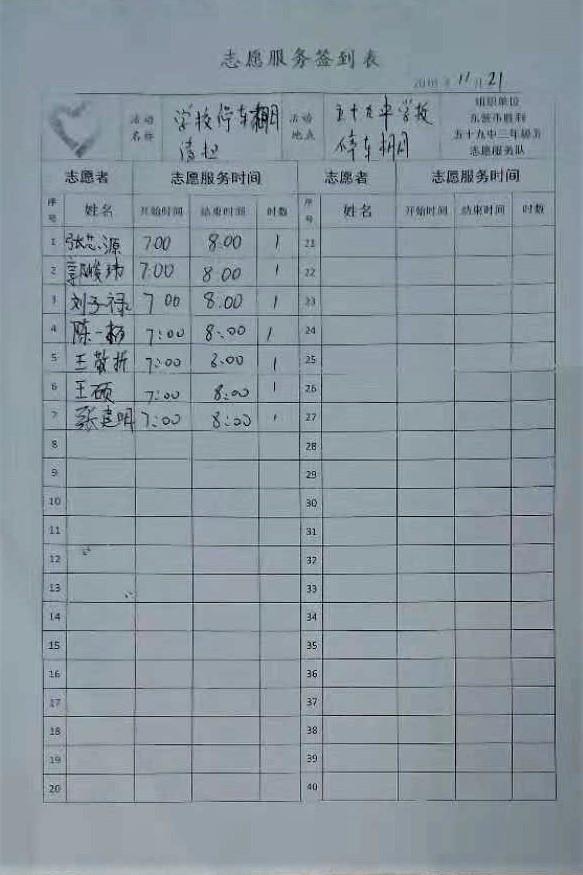 志愿服务签到表
年 11 月 21
活动名称 学校停车棚清扫 活动地点 五十九中学校停车棚 组织单位 东营市胜利五十九中三年级5 志愿服务队
志愿者 志愿服务时间 志愿者 志愿服务时间
序号 姓名 开始时间 结束时间 时数 序号 姓名 开始时间 结束时间 时数
1 张芯源 7:00 8:00 1 21
2 郭峻玮 7:00 8:00 1 22
3 刘子禄 7:00 8:00 1 23
4 陈一 7:00 8:00 1 24
5 王敬折 7:00 8:00 1 25
6 王硕 7:00 8:00 1 26
7 张建明 7:00 8:00 1 27
8 28
9 29
10 30
11 31
12 32
13 33
14 34
15 35
16 36
17 37
18 38
19 39
20 40